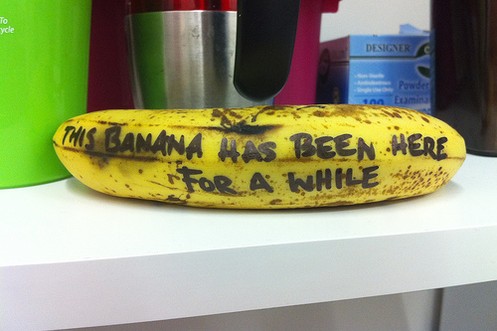 To
cycle
DESIGNER
Powder
Examina
100
THIS BANANA HAS BEEN HERE
FOR A WHILE